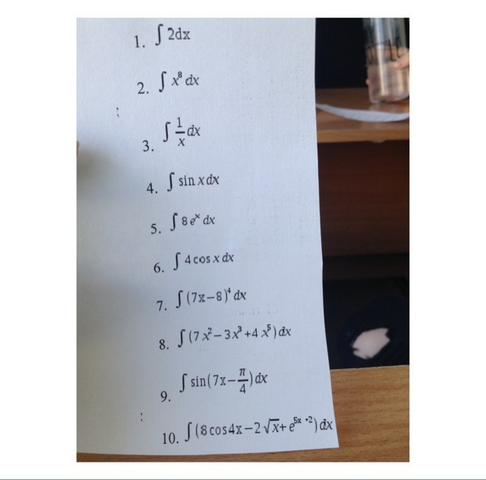 1. ∫ 2dx
2. ∫ x⁸ dx
3. ∫ 1/x dx
4. ∫ sin x dx
5. ∫ 8 eˣ dx
6. ∫ 4 cos x dx
7. ∫ (7x−8)⁴ dx
8. ∫ (7x²−3x³+4x⁵) dx
9. ∫ sin(7x−π/4) dx
10. ∫ (8 cos 4x−2√x+e⁵ˣ⁺²) dx